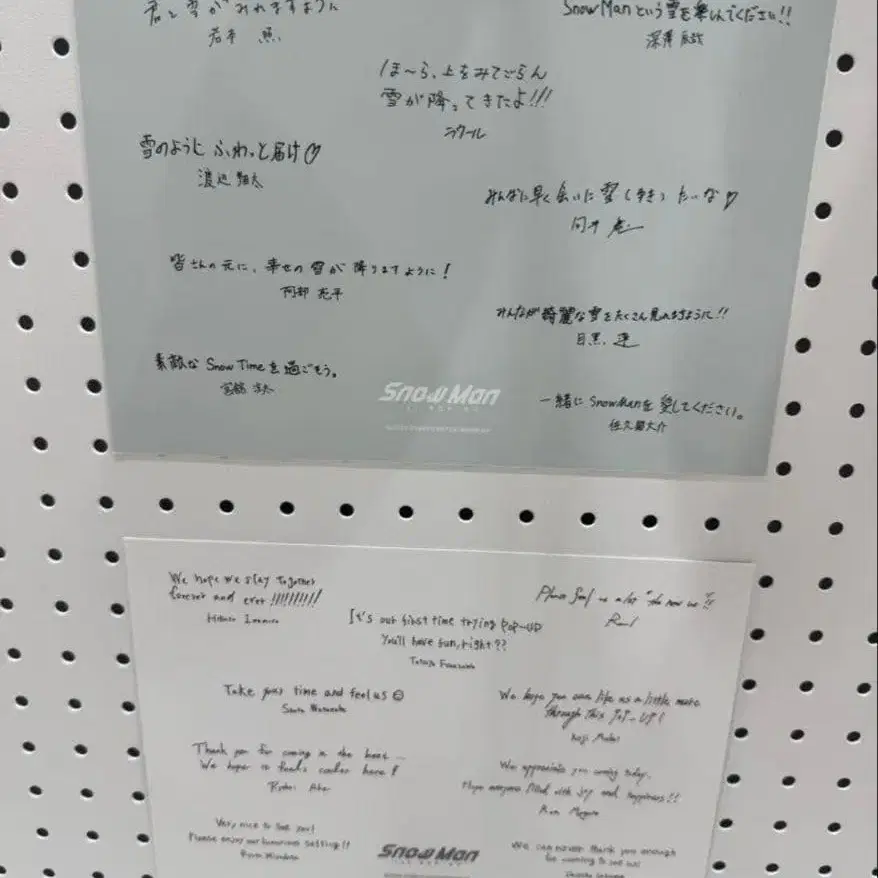 君と雪がみれますように
岩本 照
SnowManという雪を楽しんでください!!
深澤辰哉
ほ〜ら、上をみてごらん
雪が降ってきたよ!!!
ラウール
雪のように ふわっと届け♡
渡辺 翔太
みんなに早く会いに雪(ゆき)たいな♡
向井 康二
皆さんの元に、幸せの雪が降りますように!
阿部 亮平
みんなが綺麗な雪をたくさん見れますように!!
目黒 蓮
素敵な Snow Timeを過ごそう。
宮舘 涼太
一緒に SnowManを愛してください。
佐久間大介
Snow Man
We hope we stay together
forever and ever !!!!!!!!!!
Hikaru Iwamoto
Please feel us a lot "the new us"!!
Raul
It's our first time trying POP-UP
You'll have fun, right??
Tatsuya Fukazawa
Take your time and feel us ☺
Shota Watanabe
We hope you can like us a little more
through this POP-UP!
Koji Mukai
Thank you for coming in the heat...
We hope it feels cooler here!
Ryohei Abe
We appreciate you coming today.
Hope everyone filled with joy and happiness!!
Ren Meguro
Very nice to see you!
Please enjoy our luxurious setting!!
Ryota Miyadate
We can never thank you enough
for coming to see us!
Daisuke Sakuma
Snow Man